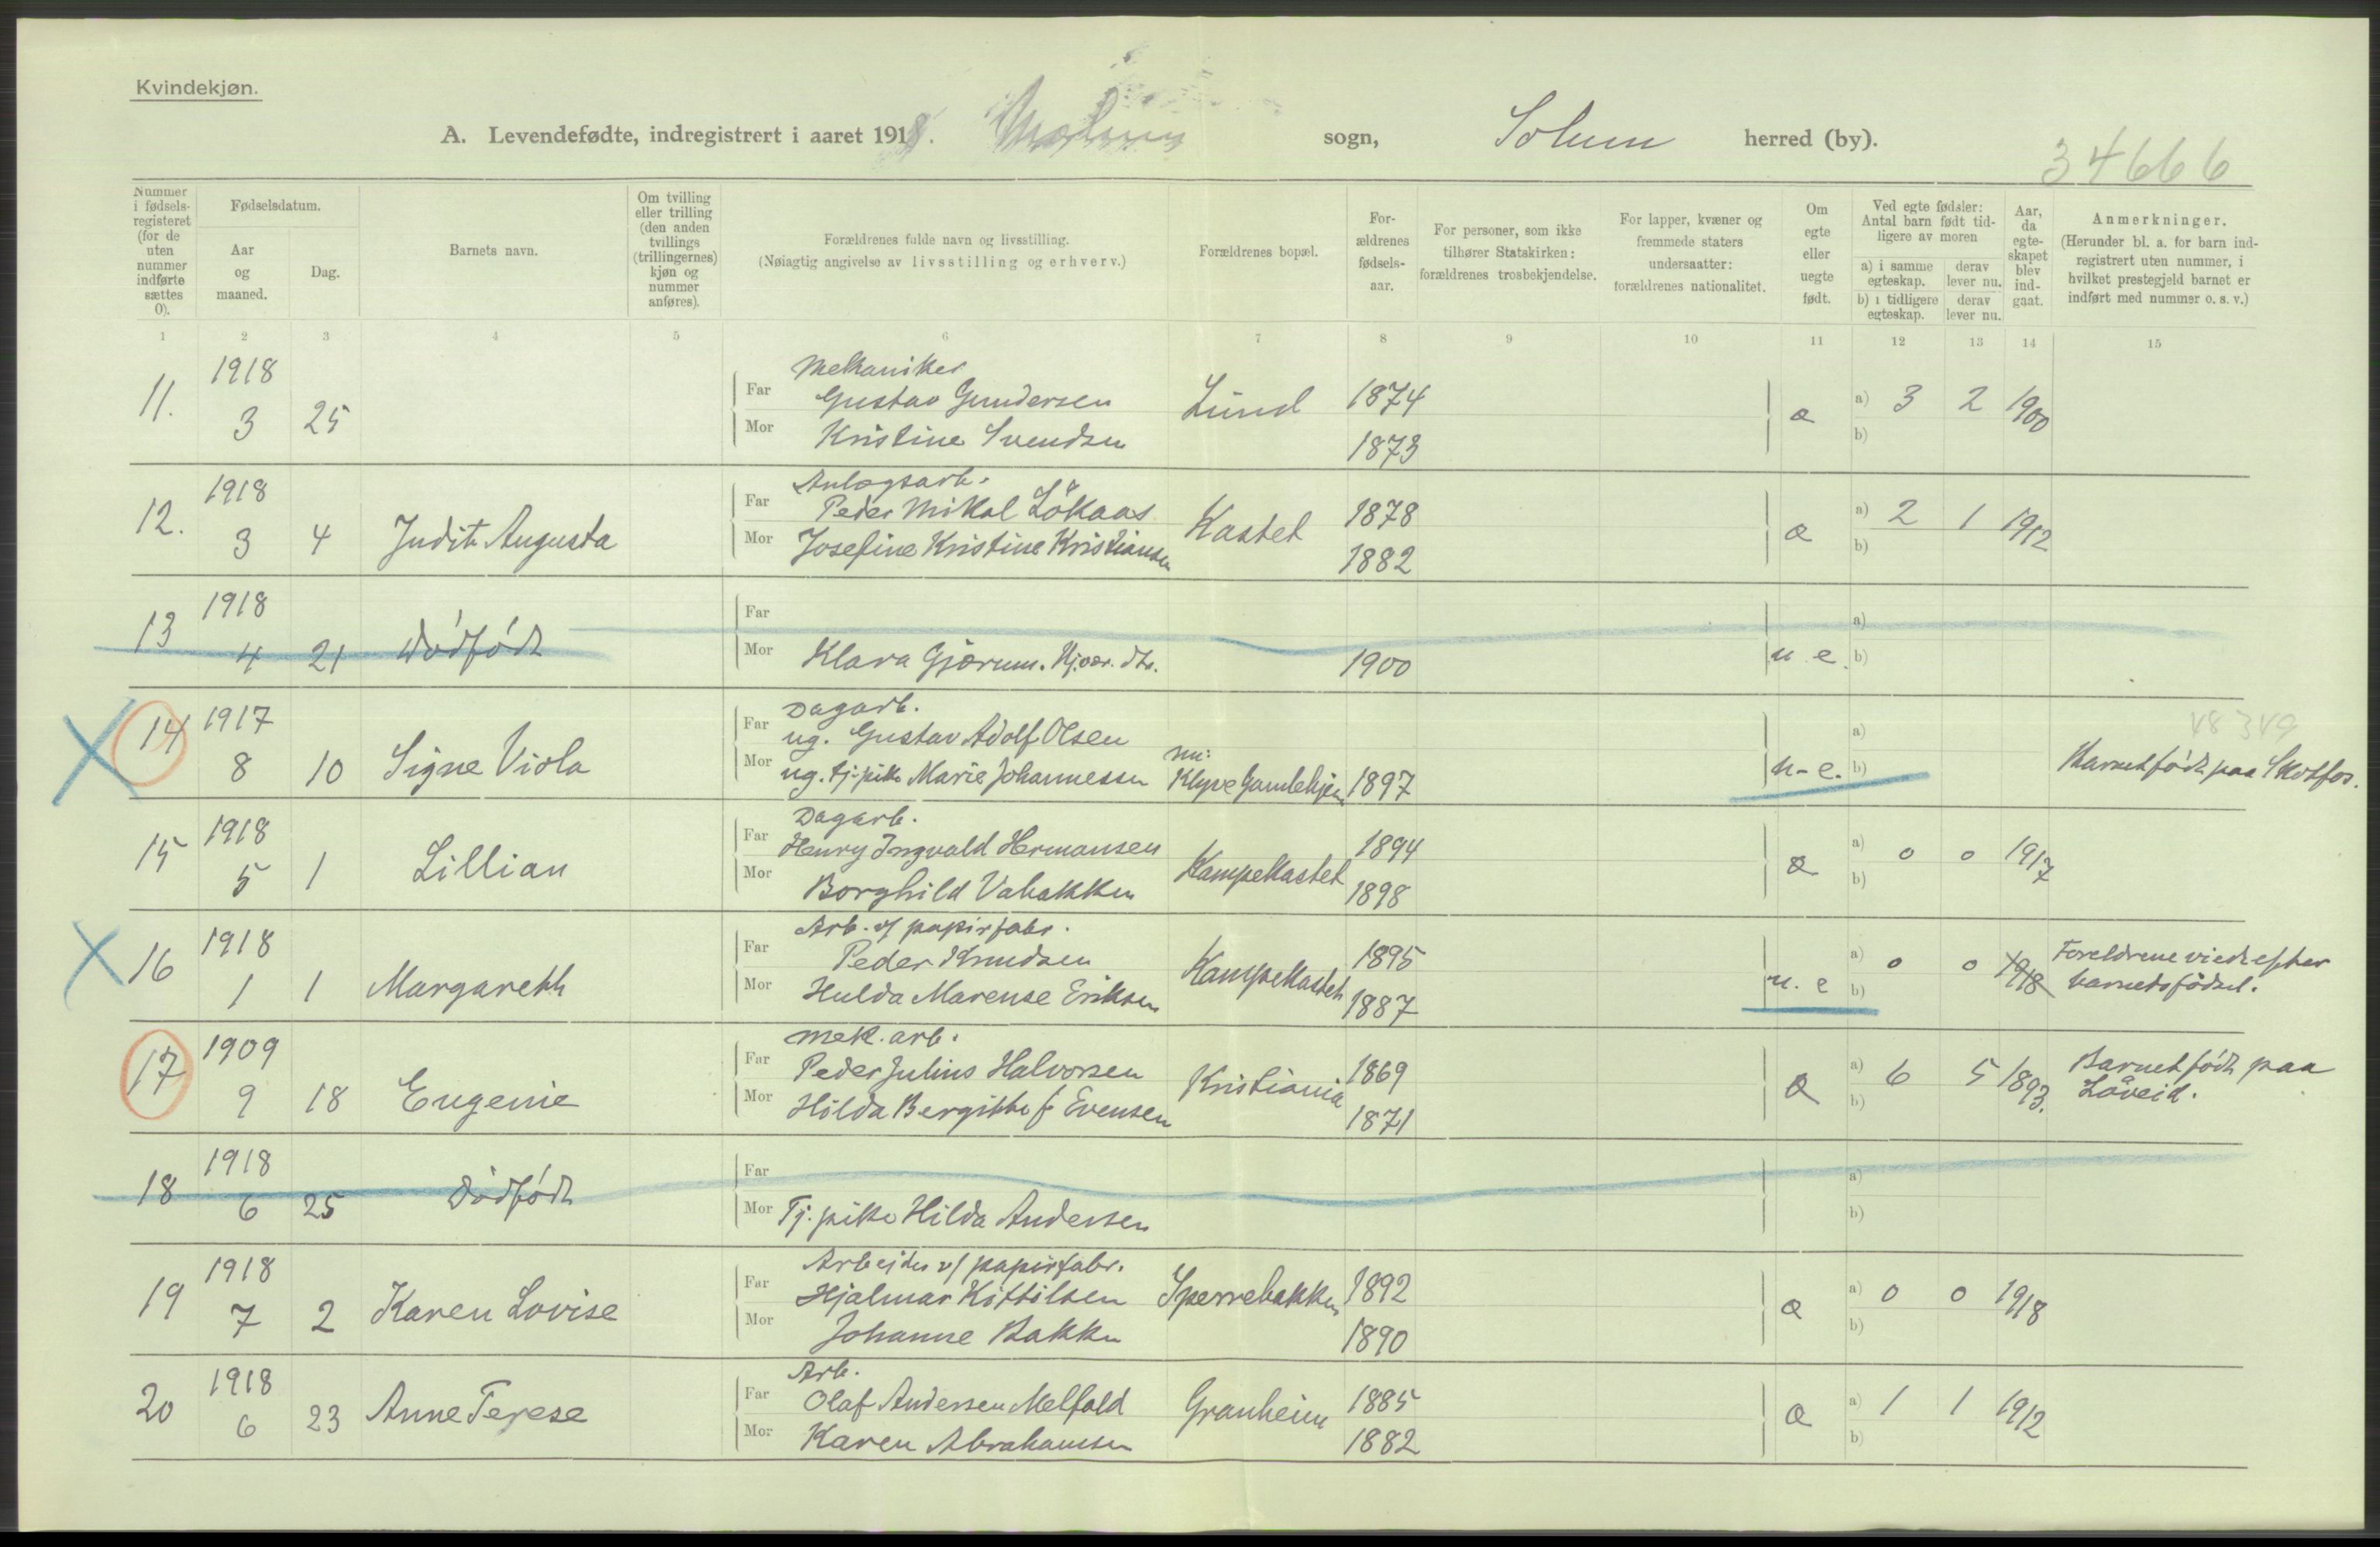 Kvindekjøn.
A. Levendefødte, indregistrert i aaret 1918. sogn, Solum herred (by).
34666
Nummer i fødsels-registeret (for de uten nummer indførte sættes 0).
Fødselsdatum.
Aar og maaned.
Dag.
Barnets navn.
Om tvilling eller trilling (den anden tvillings (trillingernes) kjøn og nummer anføres).
Forældrenes fulde navn og livsstilling.
(Nøiagtig angivelse av livsstilling og erhverv.)
Forældrenes bopæl.
For-ældrenes fødsels-aar.
For personer, som ikke tilhører Statskirken: forældrenes trosbekjendelse.
For lapper, kvæner og fremmede staters undersaatter: forældrenes nationalitet.
Om egte eller uegte født.
Ved egte fødsler: Antal barn født tid-ligere av moren
a) i samme egteskap.
derav lever nu.
b) i tidligere egteskap.
derav lever nu.
Aar, da egte-skapet blev ind-gaat.
Anmerkninger.
(Herunder bl. a. for barn ind-registrert uten nummer, i hvilket prestegjeld barnet er indført med nummer o. s. v.)
1 2 3 4 5 6 7 8 9 10 11 12 13 14 15
1918 Mekaniker
11. 3 25 Far Gustav Gundersen Lund 1874 a) 3 2 1900
Mor Kristine Svendsen 1873 b)
1918 Anlægsarb.
12. 3 4 Judit Augusta Far Peder Mikal Lökaas Kastet 1878 a) 2 1 1912
Mor Josefine Kristine Kristiansen 1882 b)
1918 Far a)
13 4 21 Dödfödt Mor Klara Gjærum. 1900 u e. b)
1917 Dagarb.
14 8 10 Signe Viola Far ug. Gustav Adolf Olsen a) 48349
Mor ug. tj. pike Marie Johannessen nu: Klyve Gamlehjem 1897 u-e. b) Barnet født paa Skotfos.
1918 Dagarb.
15 5 1 Lillian Far Henry Ingvald Hermansen Kampekastet 1894 a) 0 0 1917
Mor Borghild Vabakken 1898 b)
1918 Arb. v/ papirfabr.
16 1 1 Margareth Far Peder Knudsen Kampekastet 1895 a) 0 0 1918 Foreldrene viet efter
Mor Hulda Marense Eriksen 1887 u. e b) barnets födsel.
1909 Mek. arb.
17 9 18 Eugenie Far Peder Julius Halvorsen Kristiania 1869 a) 6 5 1893. Barnet født paa
Mor Hilda Bergitte f Evensen 1871 b) Löveid.
1918 Far a)
18 6 25 Dödfödt Mor Tj. pike Hilda Andersen b)
1918 Arbeider v/ papirfabr.
19 7 2 Karen Lovise Far Hjalmar Kittilsen Sperrebakken 1892 a) 0 0 1918
Mor Johanne Bakken 1890 b)
1918 Arb.
20 6 23 Anne Terese Far Olaf Andersen Melfald Granheim 1885 a) 1 1 1912
Mor Karen Abrahamsen 1882 b)